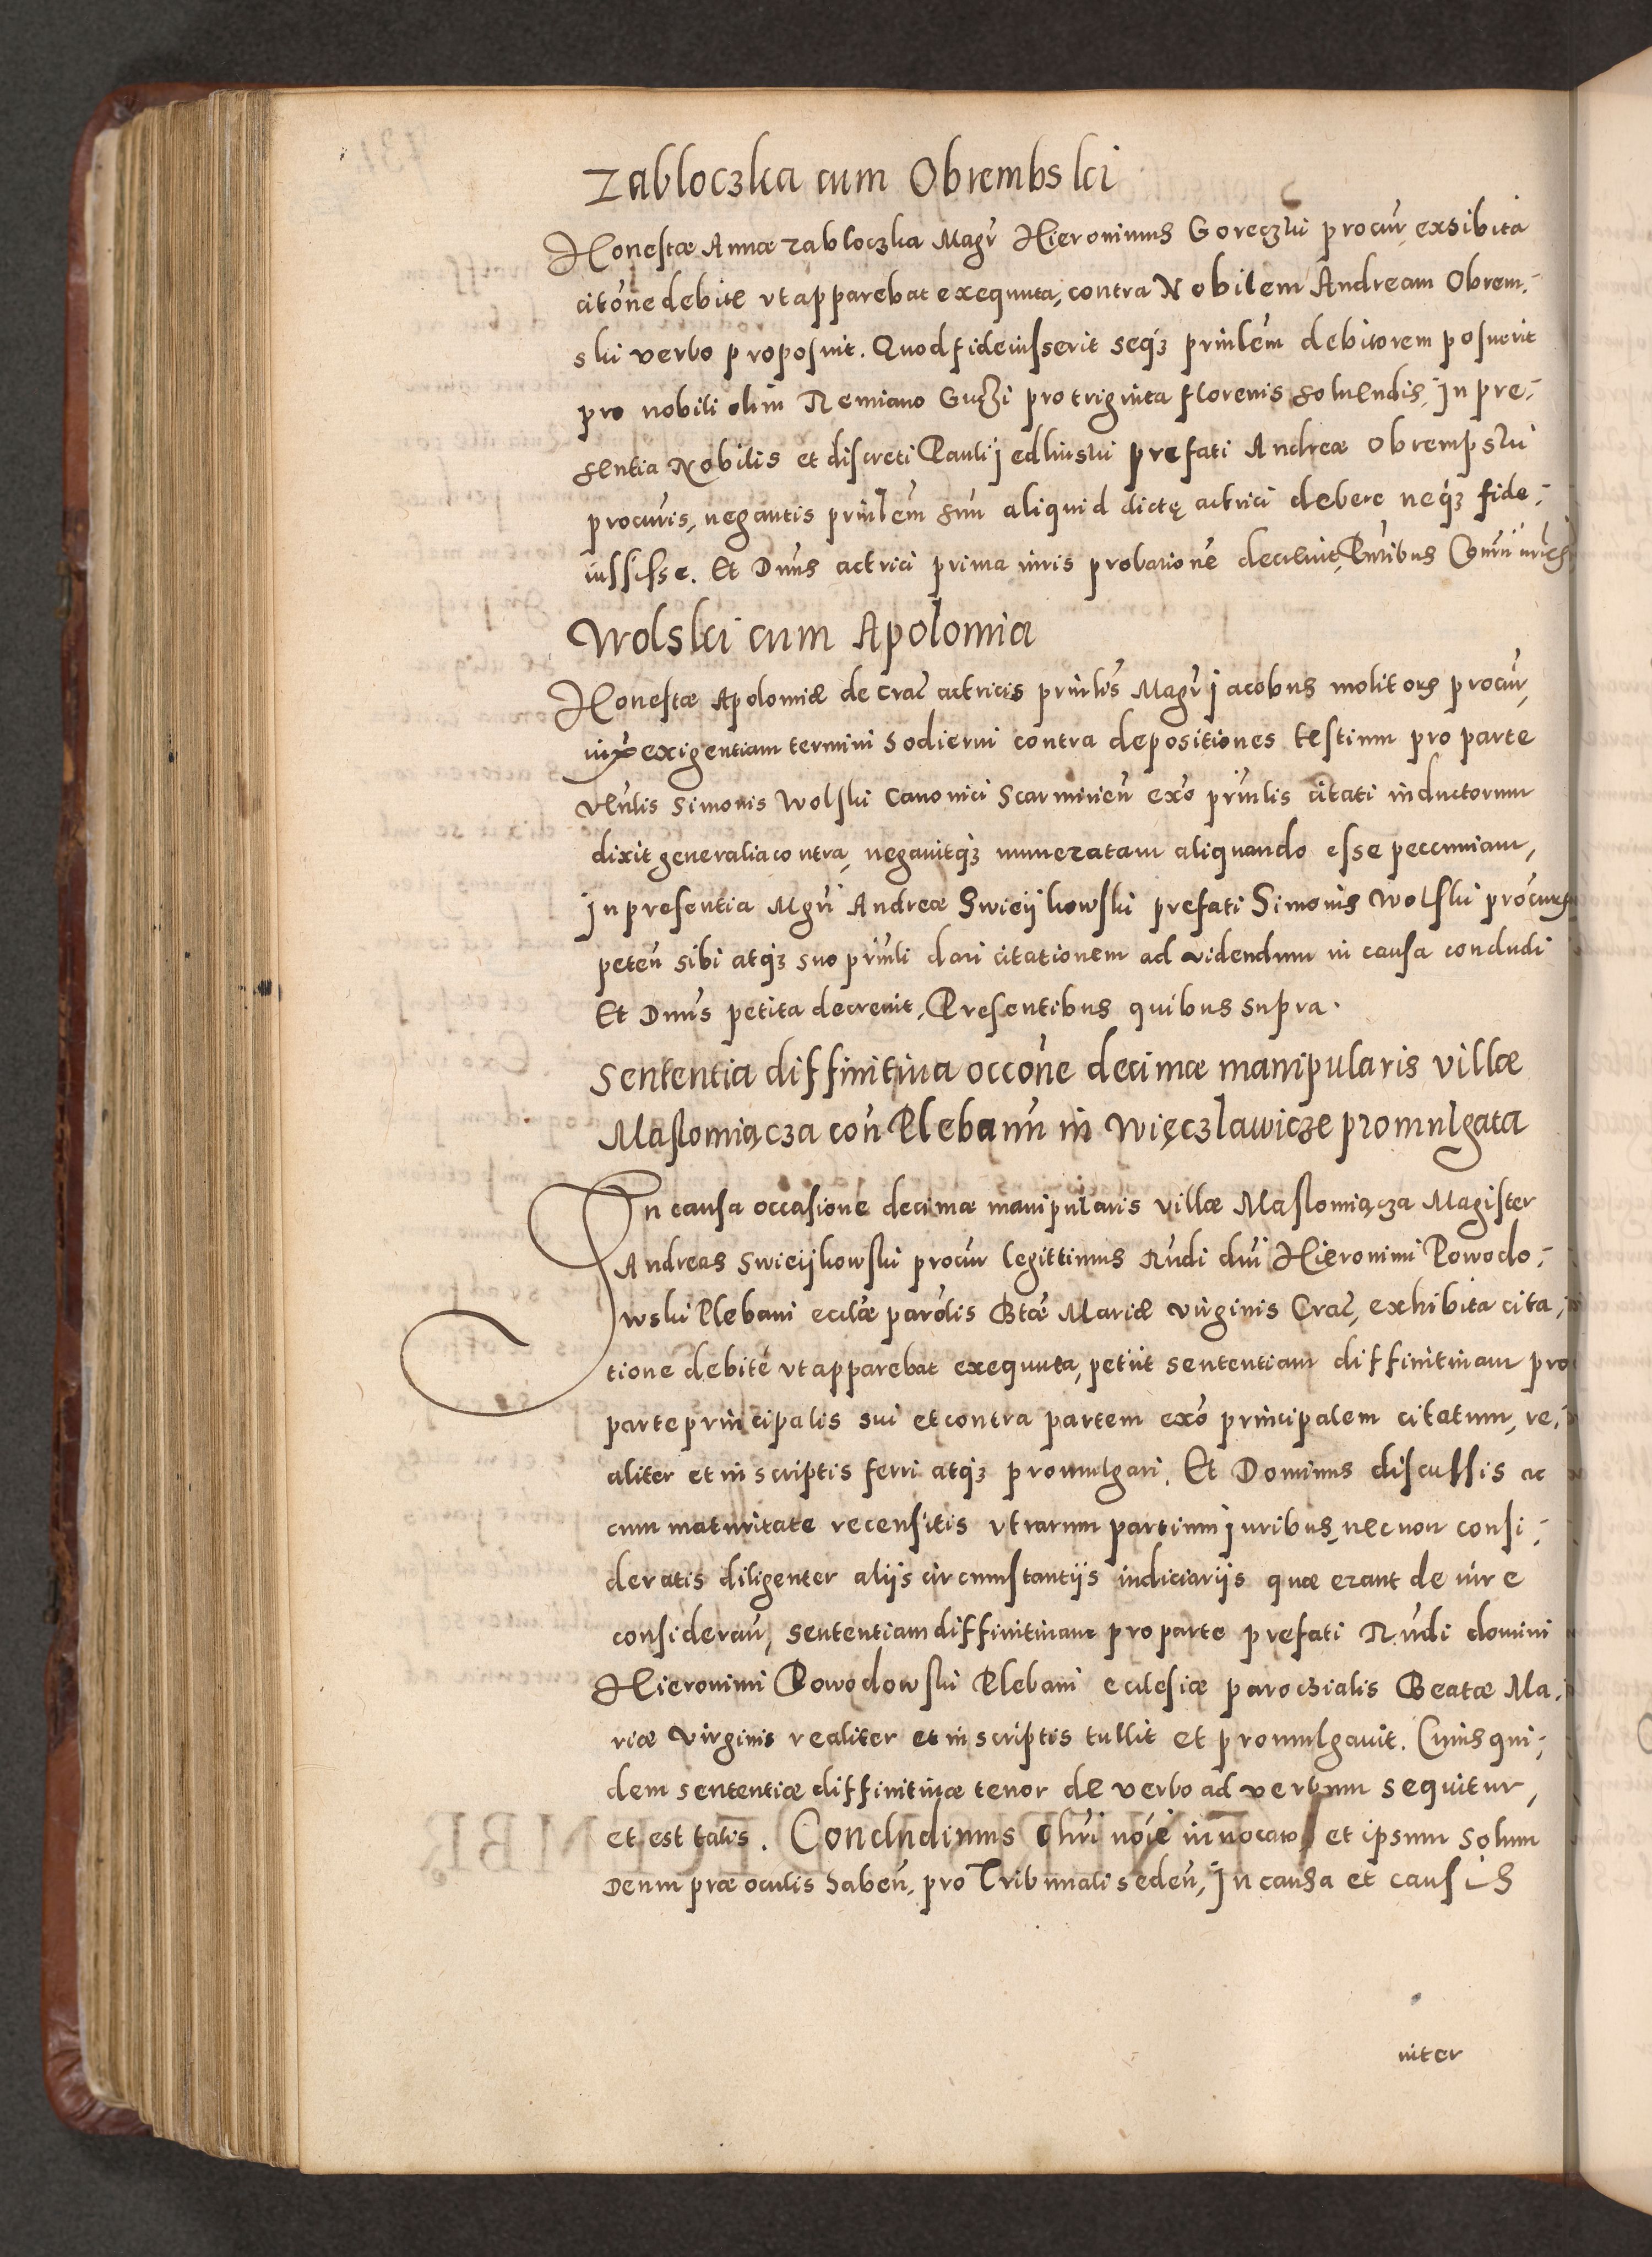 Zabloczka cum Obrembski
Honestæ Annæ Zabloczka Magr Hieronimus Goreczki procur, exhibita
citone debite vt apparebat exequuta, contra Nobilem Andream Obrem-
ski verbo proposuit. Quod fideiusserit seqz prinlem debitorem posuerit
pro nobili olim Remiano Guczi pro triginta florenis soluendis, In pre-
sentia Nobilis et discreti Pauli Jedlinski prefati Andreæ Obrempski
procuris, negantis prinlem suu aliquid dictę actrici debere neqz fide-
iussisse. Et Dnus actrici prima iuris probatione decreuit,
Wolski cum Apolomia
Honestæ Apolomiæ de Crac actricis prinlis Magr Jacobus molitoris procur,
iuxta exigentiam termini hodierni contra depositiones testium pro parte
Venlis Simonis Wolski Canonici Scarmirien exo prinlis citati inductorum
dixit generalia contra, negauitqz numeratam aliquando esse pecuniam,
In presentia Mgri Andreæ Swieijkowski prefati Simonis Wolski procuris
peten sibi atqz suo prinli dari citationem ad videndum in causa concludi
Et Dnus petita decreuit, Presentibus quibus supra.
Sententia diffinitiua occone decimæ manipularis villæ
Maslomiącza con Plebanu in Więczlawicze promulgata
In causa occasione decimæ manipularis villæ Maslomiącza Magister
Andreas Swieijkowski procur legittimus Rndi dni Hieronimi Powodo-
wski Plebani ecclæ parolis Btæ Mariæ Virginis Crac, exhibita cita-
tione debite vt apparebat exequuta, petiit sententiam diffinitiuam pro
parte principalis sui et contra partem exo principalem citatum, re-
aliter et in scriptis ferri atqz promulgari. Et Dominus discussis ac
cum maturitate recensitis vtrarum partium iuribus, nec non consi-
deratis diligenter aliis circumstantijs iudiciarijs quæ erant de iure
consideran, sententiam diffinitiuam pro parte prefati Rndi domini
Hieronimi Powodowski Plebani ecclesiæ parochialis Beatæ Ma-
riæ Virginis realiter et in scriptis tullit et promulgauit. Cuius qui-
dem sententiæ diffinitiuæ tenor de verbo ad verbum sequitur,
et est talis. Concludimus Chri noie inuocato, et ipsum solum
Deum præ oculis haben, pro Tribunali seden, In causa et causis
inter